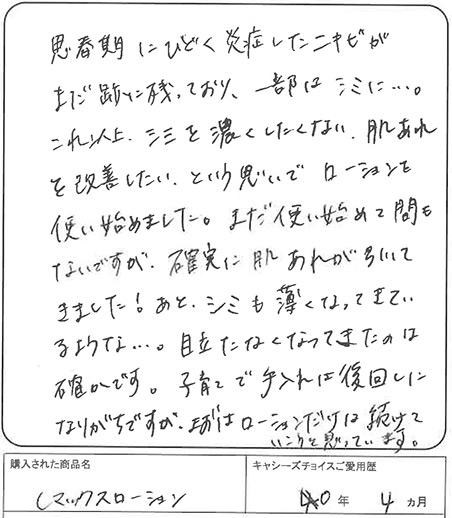 思春期にひどく炎症したニキビが
まだ跡に残っており、一部はシミに…。
これ以上、シミを濃くしたくない、肌あれ
を改善したい、という思いでローションを
使い始めました。まだ使い始めて間も
ないですが、確実に肌あれが引いて
きました！あと、シミも薄くなってきてい
るような…。目立たなくなってきたのは
確かです。子育てで手入れは後回しに
なりがちですが、まずはローションだけは続けて
いこうと思っています。
購入された商品名
キャシーズチョイスご愛用歴
Cマックスローション
0年 4ヵ月